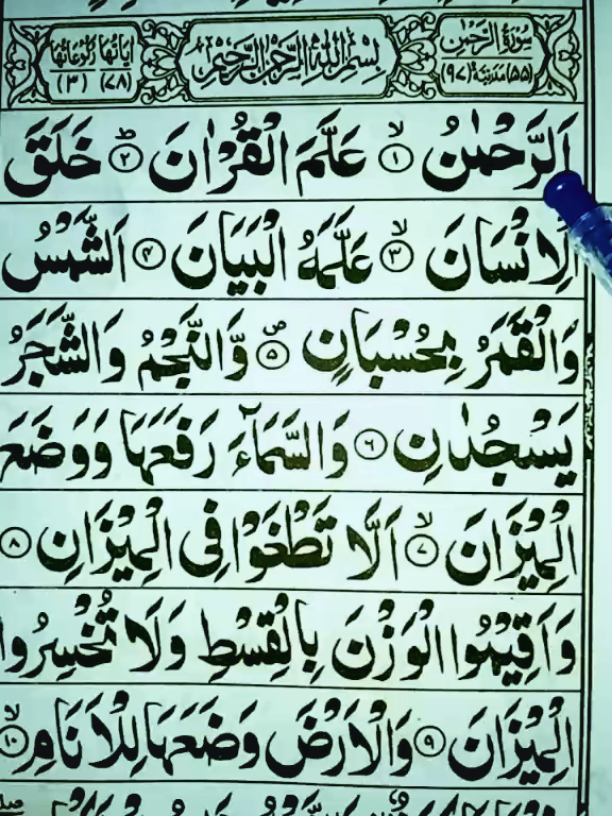 سُوْرَةُ الرَّحْمٰنِ
(٥٥) مَدَنِيَّةٌ (٩٧)
بِسْمِ اللّٰهِ الرَّحْمٰنِ الرَّحِيْمِ
اٰيَاتُهَا رُكُوْعَاتُهَا
(٧٨) (٣)
اَلرَّحْمٰنُ ۙ‏﴿۱﴾ عَلَّمَ الْقُرْاٰنَ ؕ‏﴿۲﴾ خَلَقَ
الْاِنْسَانَ ۙ‏﴿۳﴾ عَلَّمَهُ الْبَيَانَ ‏﴿۴﴾ اَلشَّمْسُ
وَالْقَمَرُ بِحُسْبَانٍ ۪‏﴿۵﴾ وَّالنَّجْمُ وَالشَّجَرُ
يَسْجُدٰنِ ‏﴿۶﴾ وَالسَّمَآءَ رَفَعَهَا وَوَضَعَ
الْمِيْزَانَ ۙ‏﴿۷﴾ اَلَّا تَطْغَوْا فِى الْمِيْزَانِ ‏﴿۸﴾
وَاَقِيْمُوا الْوَزْنَ بِالْقِسْطِ وَلَا تُخْسِرُوا
الْمِيْزَانَ ‏﴿۹﴾ وَالْاَرْضَ وَضَعَهَا لِلْاَنَامِ ۙ‏﴿۱۰﴾